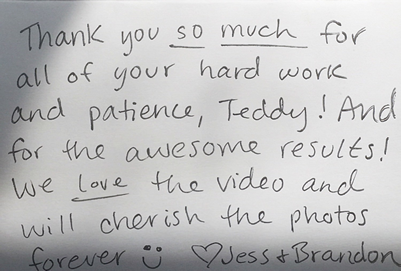 Thank you so much for
all of your hard work
and patience, Teddy! And
for the awesome results!
We love the video and
will cherish the photos
forever :) ♡Jess + Brandon